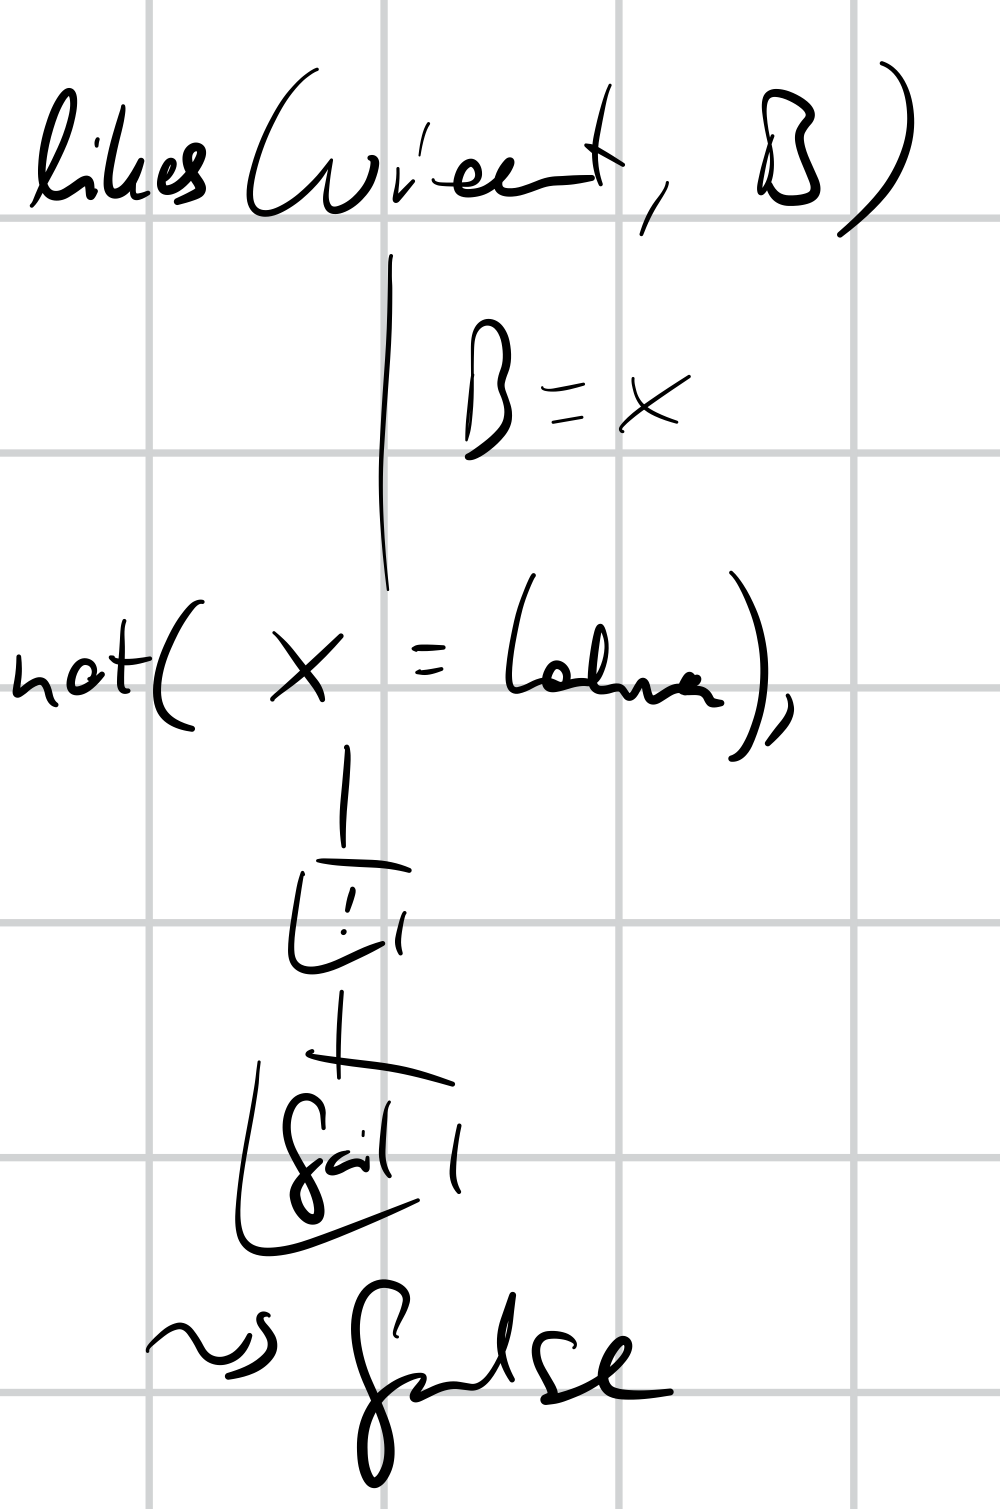 likes (vincent, B)
B = x
not( X =
),
!
fail
~> false